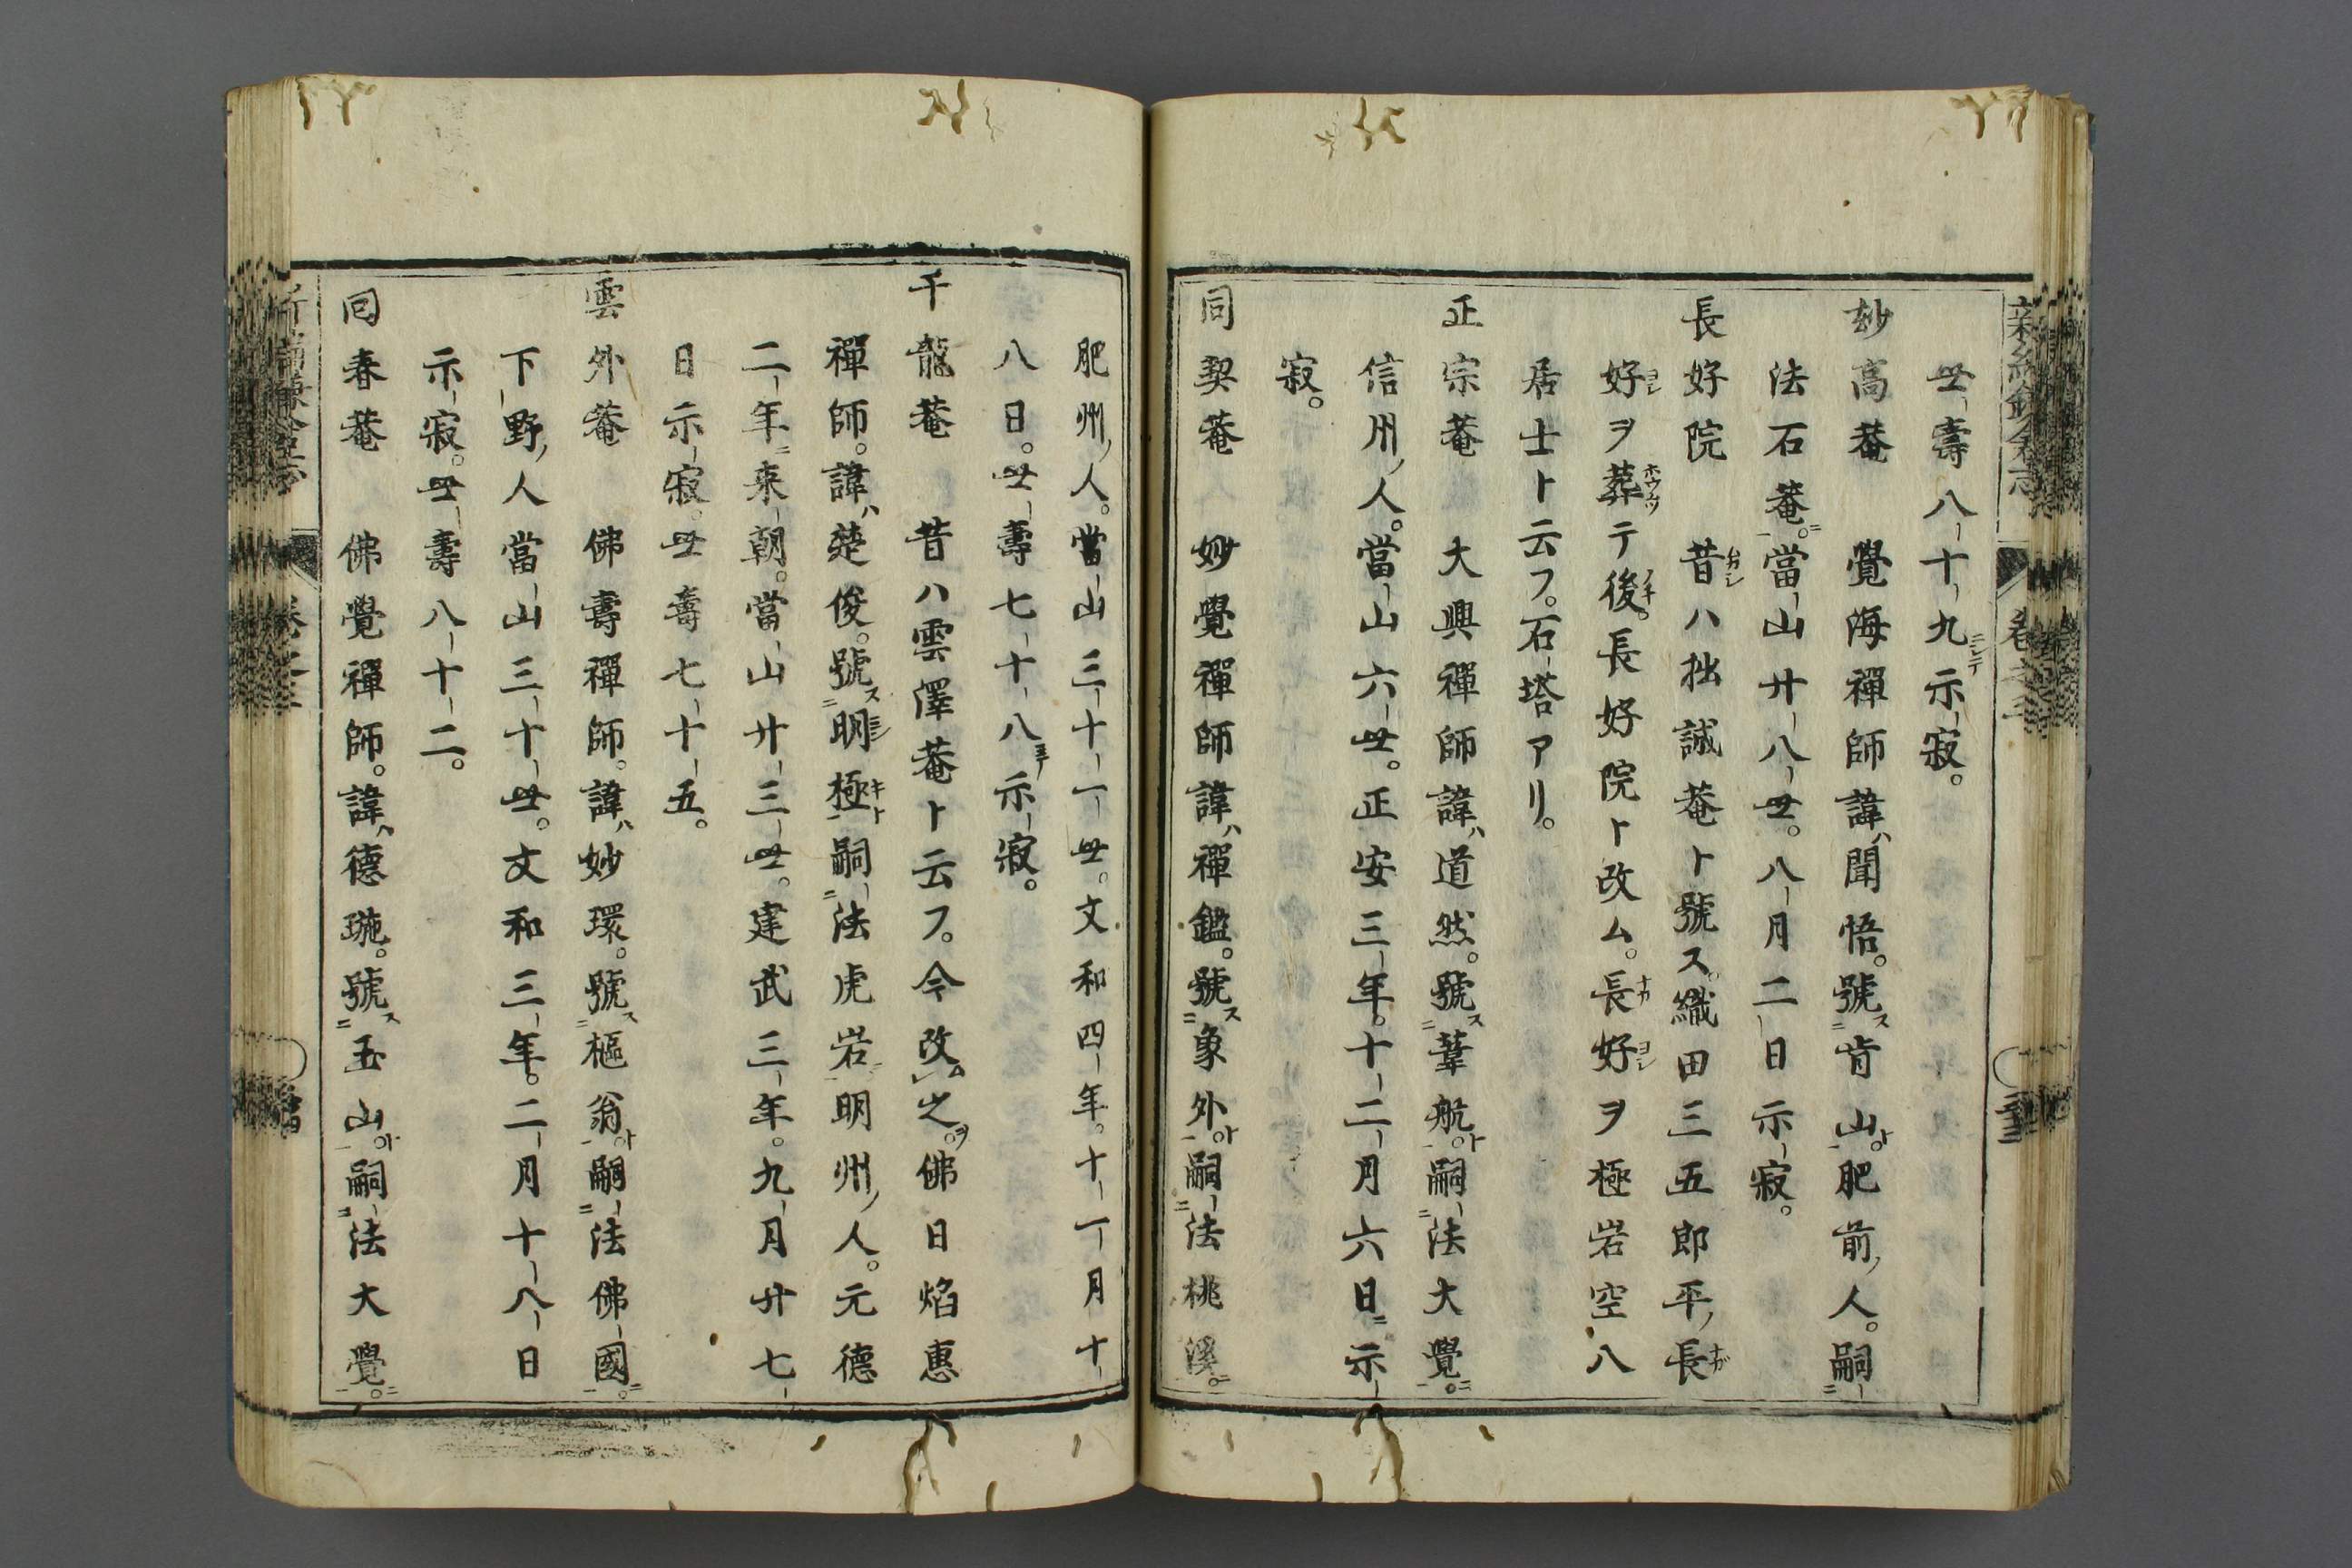 世壽八十九ニシテ示寂。
玅高菴　覺海禪師諱ハ聞悟。號ス肯山ト。肥前ノ人。嗣
法石菴ニ。當山廿八世。八月二日示寂。
長好院　昔ハ拙誠菴ト號ス。織田三五郎平ノ長
好ヲ葬テ後。長好院ト改ム。長好ヲ極岩空八
居士ト云フ。石塔アリ。
正宗菴　大興禪師諱ハ道然。號ス葦航ト。嗣法大覺ニ。
信州ノ人。當山六世。正安三年。十二月六日ニ示
寂。
同契菴　妙覺禪師諱ハ禪鑑。號ス象外ト。嗣法桃溪ニ。
肥州ノ人。當山三十一世。文和四年。十一月十
八日。世壽七十八ニテ示寂。
千龍菴　昔ハ雲澤菴ト云フ。今改ム之ヲ。佛日焰惠
禪師。諱ハ楚俊。號ス明極ト嗣法虎岩ニ明州ノ人。元德
二年ニ来朝。當山廿三世。建武三年。九月廿七
日示寂。世壽七十五。
雲外菴　佛壽禪師。諱ハ妙環。號ス樞翁ト。嗣法佛國ニ。
下野ノ人當山三十世。文和三年。二月十八日
示寂。世壽八十二。
囘春菴　佛覺禪師。諱ハ德璇。號ス玉山ト。嗣法大覺ニ。